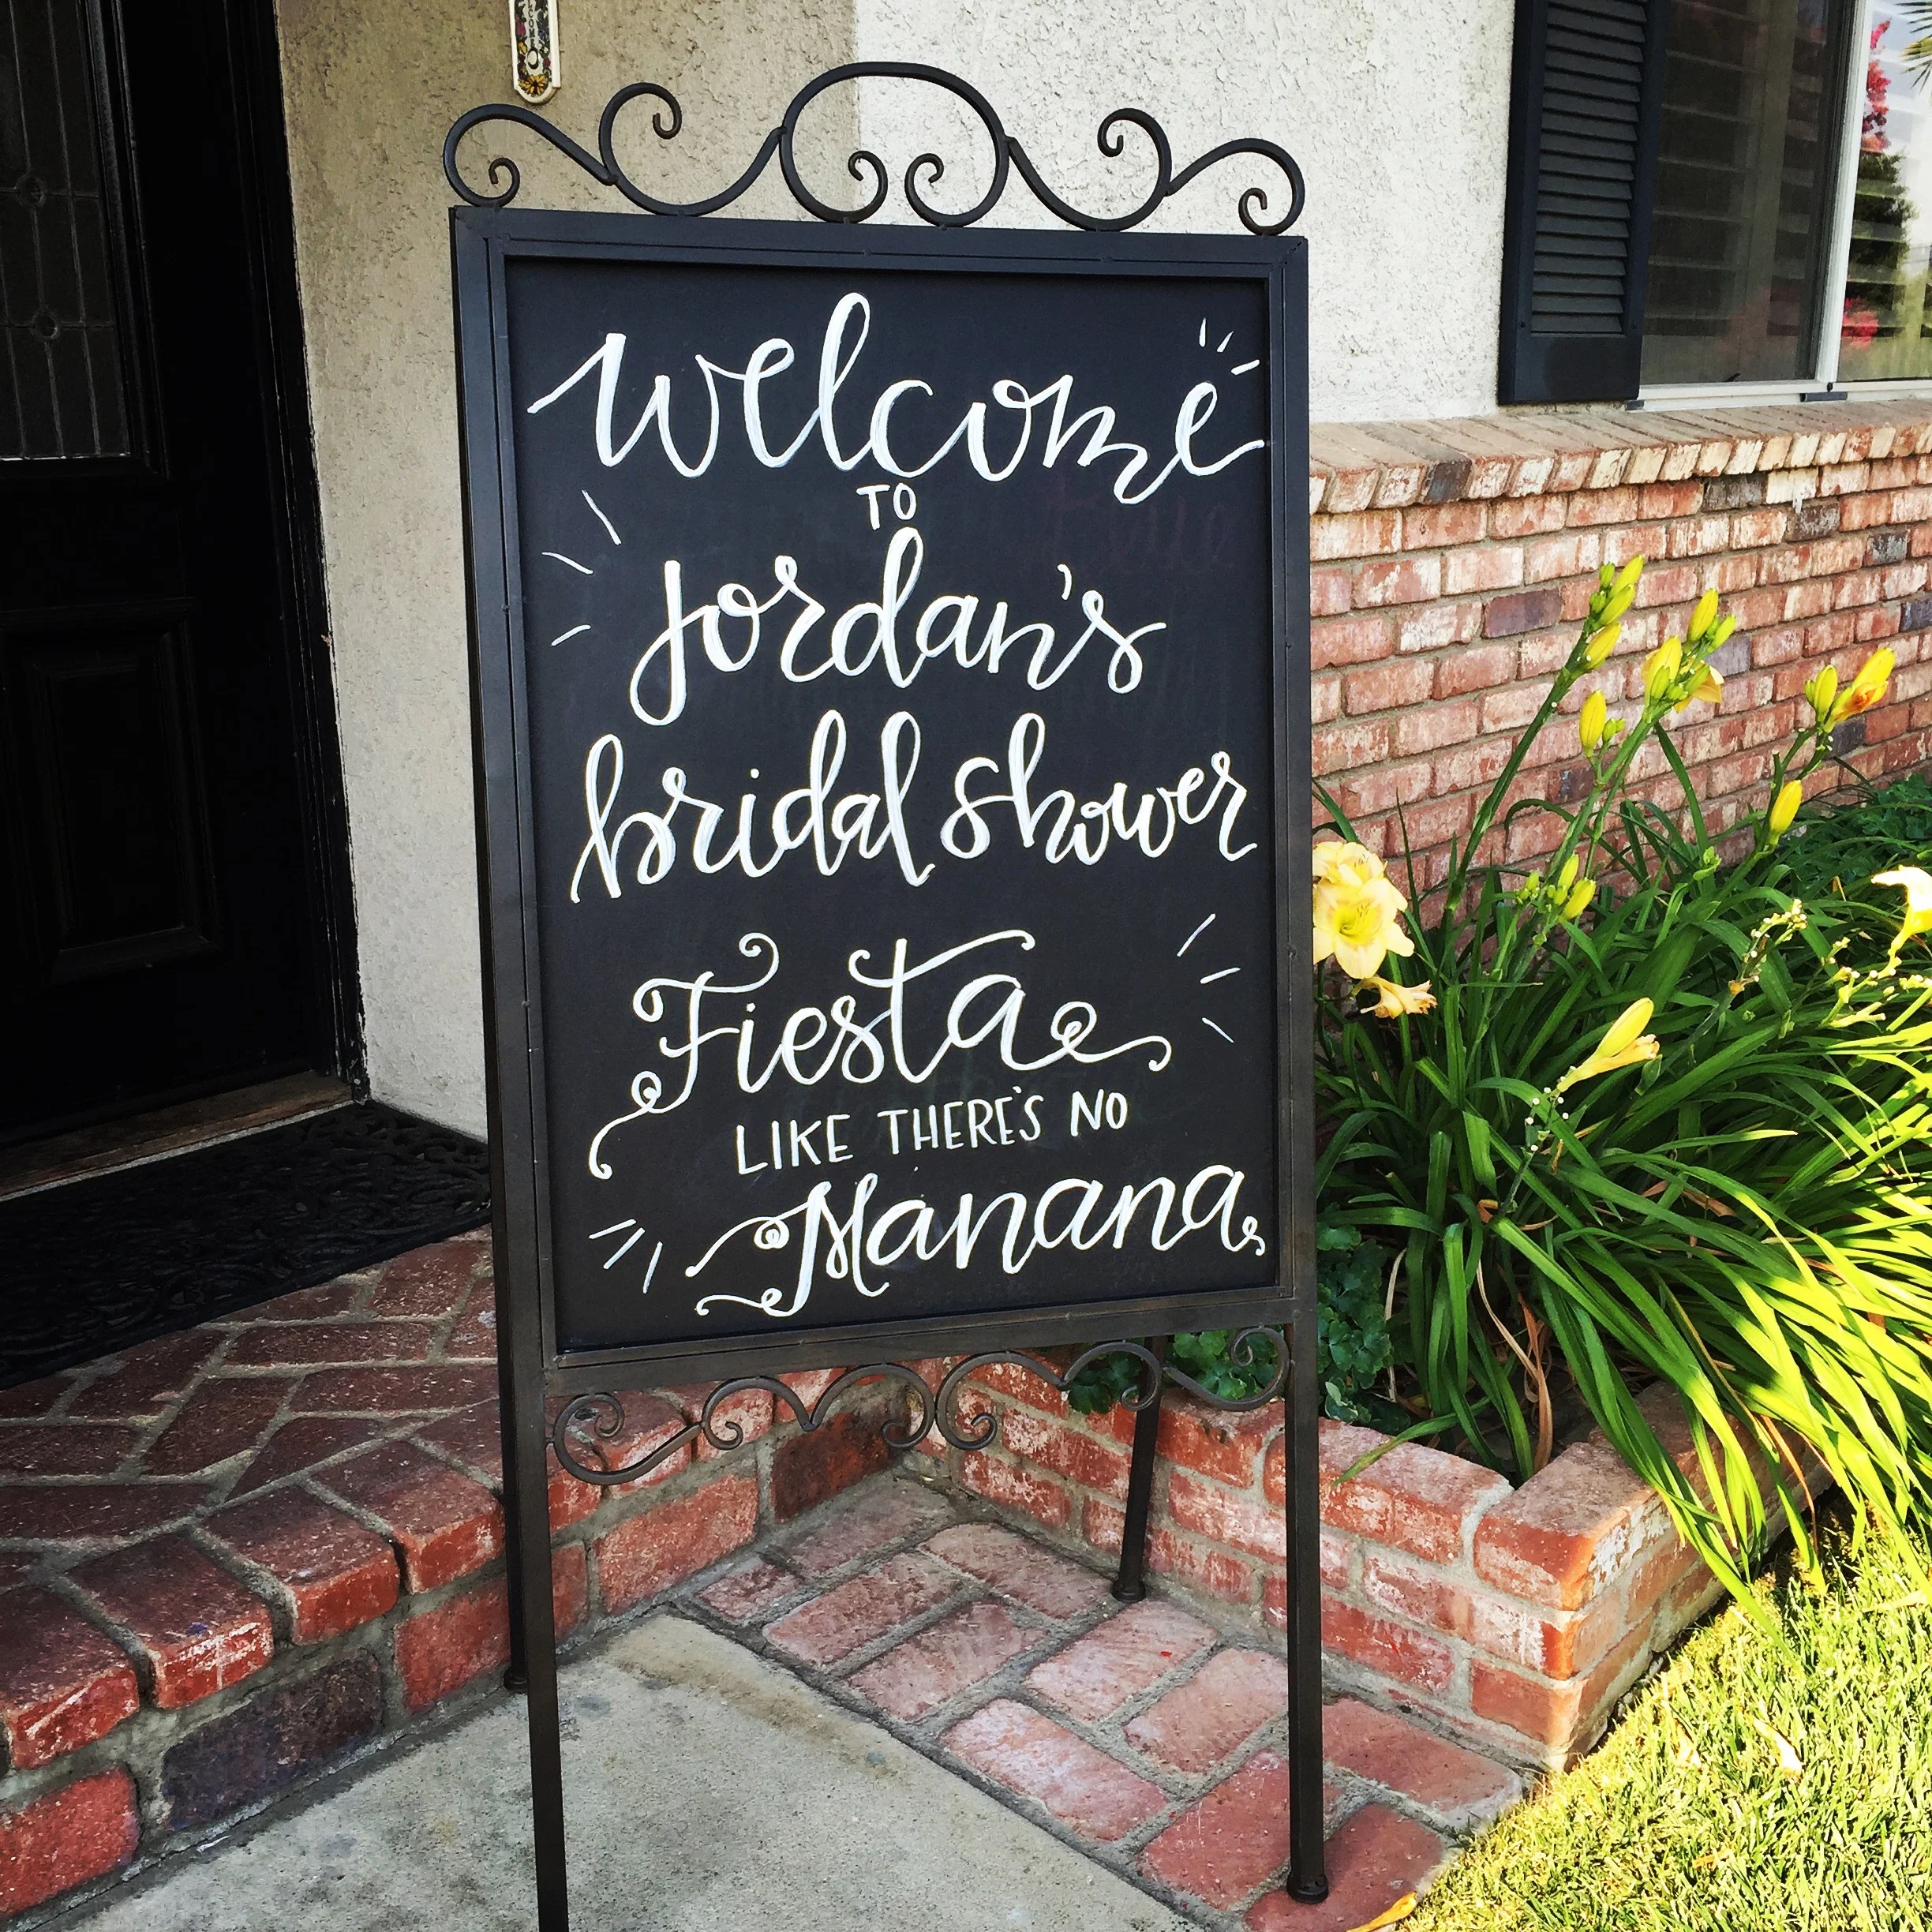 welcome
TO
Jordan's
bridal shower
Fiesta
LIKE THERE'S NO
Manana